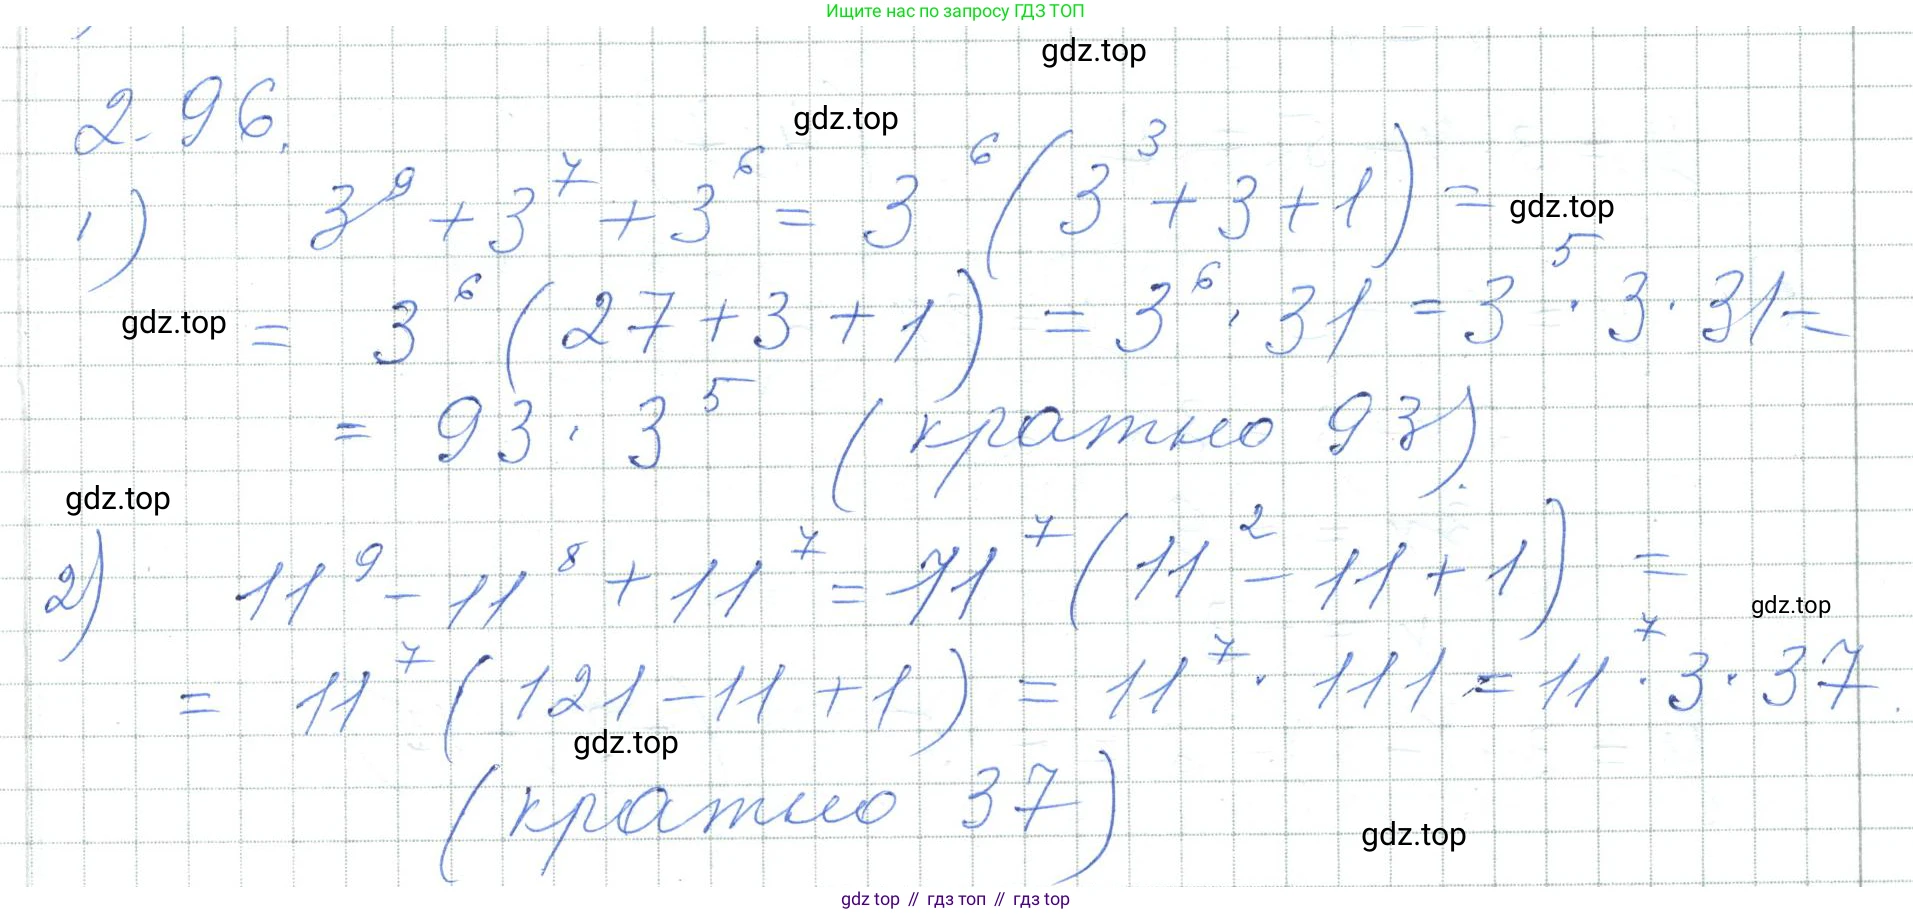 Ищите нас по запросу ГДЗ ТОП
gdz.top
2.96.
gdz.top
1) 3⁹ + 3⁷ + 3⁶ = 3⁶ (3³ + 3 + 1) =
gdz.top
gdz.top
= 3⁶ (27 + 3 + 1) = 3⁶ · 31 = 3⁵ · 3 · 31 =
= 93 · 3⁵ (кратно 93).
gdz.top
2) 11⁹ - 11⁸ + 11⁷ = 11⁷ (11² - 11 + 1) =
gdz.top
= 11⁷ (121 - 11 + 1) = 11⁷ · 111 = 11⁷ · 3 · 37.
gdz.top
(кратно 37)
gdz.top
gdz top // гдз топ // гдз top